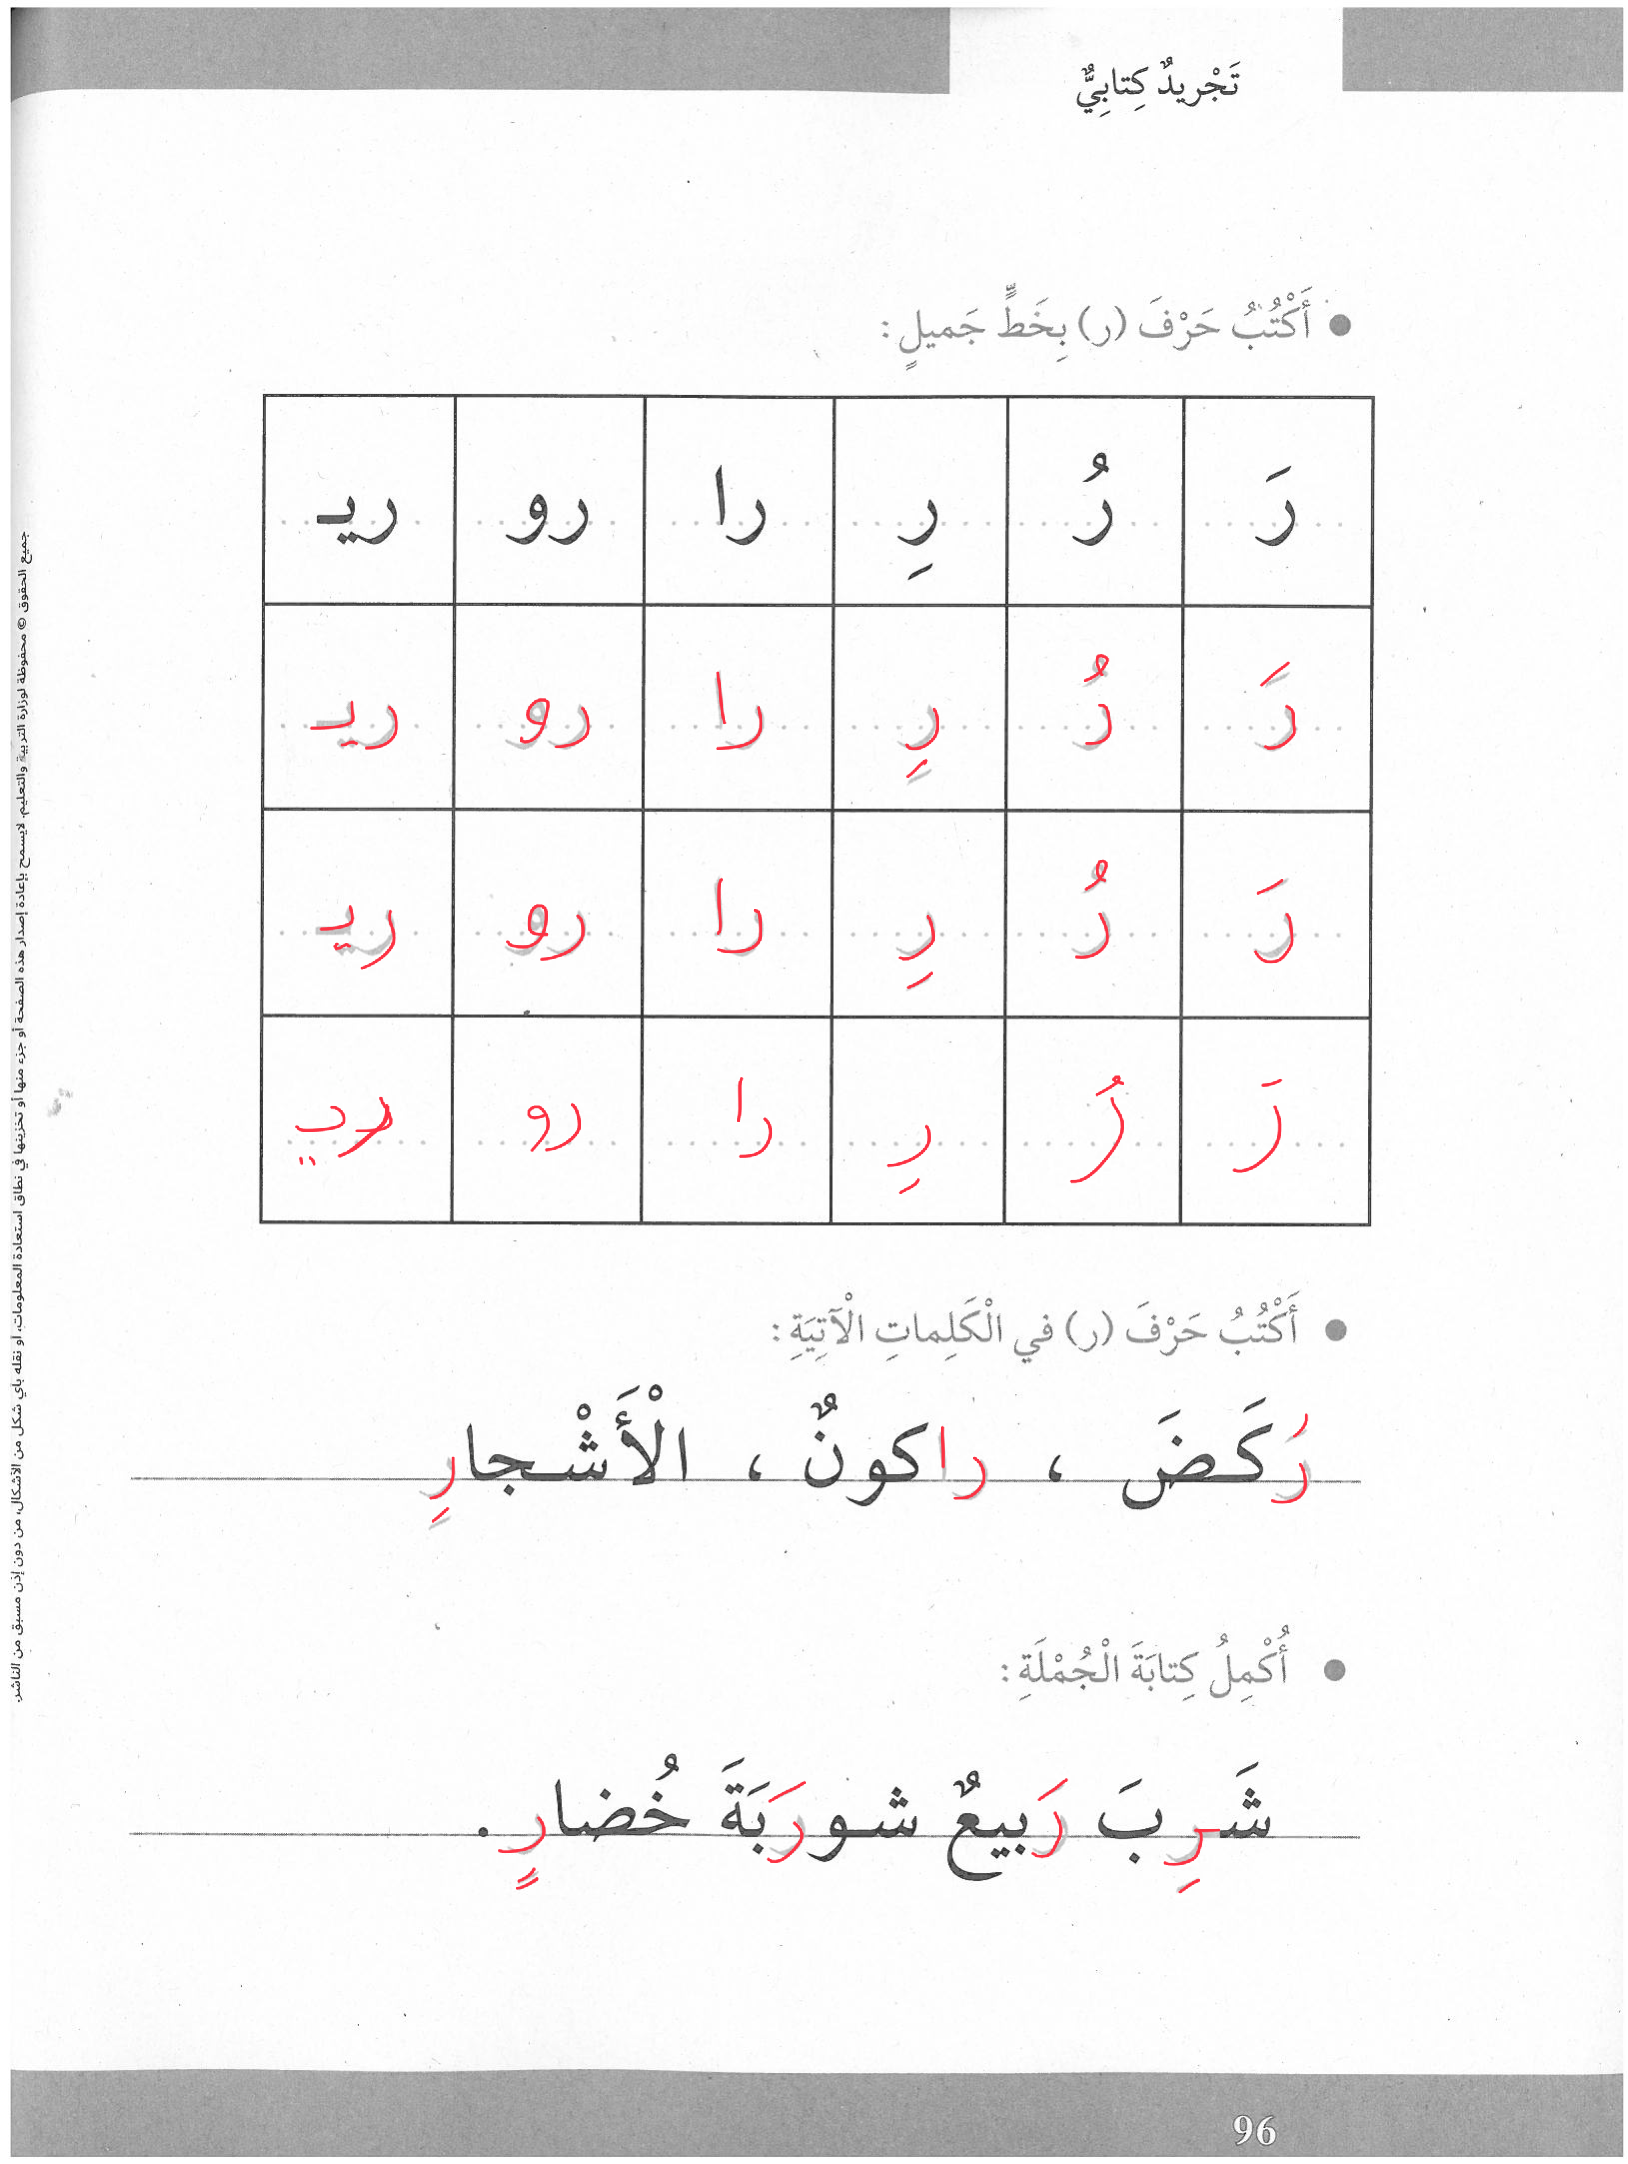 تَجْريدٌ كِتابِيٌّ
● أَكْتُبُ حَرْفَ (ر) بِخَطٍّ جَميلٍ :
رَ رُ رِ را رو ريـ
رَ رُ رِ را رو ريـ
رَ رُ رِ را رو ريـ
رَ رُ رِ را رو ريـ
● أَكْتُبُ حَرْفَ (ر) في الْكَلِماتِ الْآتِيَةِ :
رَكَضَ ، راكونٌ ، الْأَشْجارِ
● أُكْمِلُ كِتابَةَ الْجُمْلَةِ :
شَرِبَ رَبيعٌ شورَبَةَ خُضارٍ .
جميع الحقوق © محفوظة لوزارة التربية والتعليم. لايسمح بإعادة إصدار هذه الصفحة أو جزء منها أو تخزينها في نطاق استعادة المعلومات، أو نقله بأي شكل من الأشكال، من دون إذن مسبق من الناشر.
96